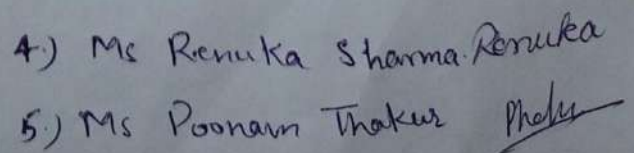 4.) Ms Renuka Sharma. Renuka
5.) Ms Poonam Thakur